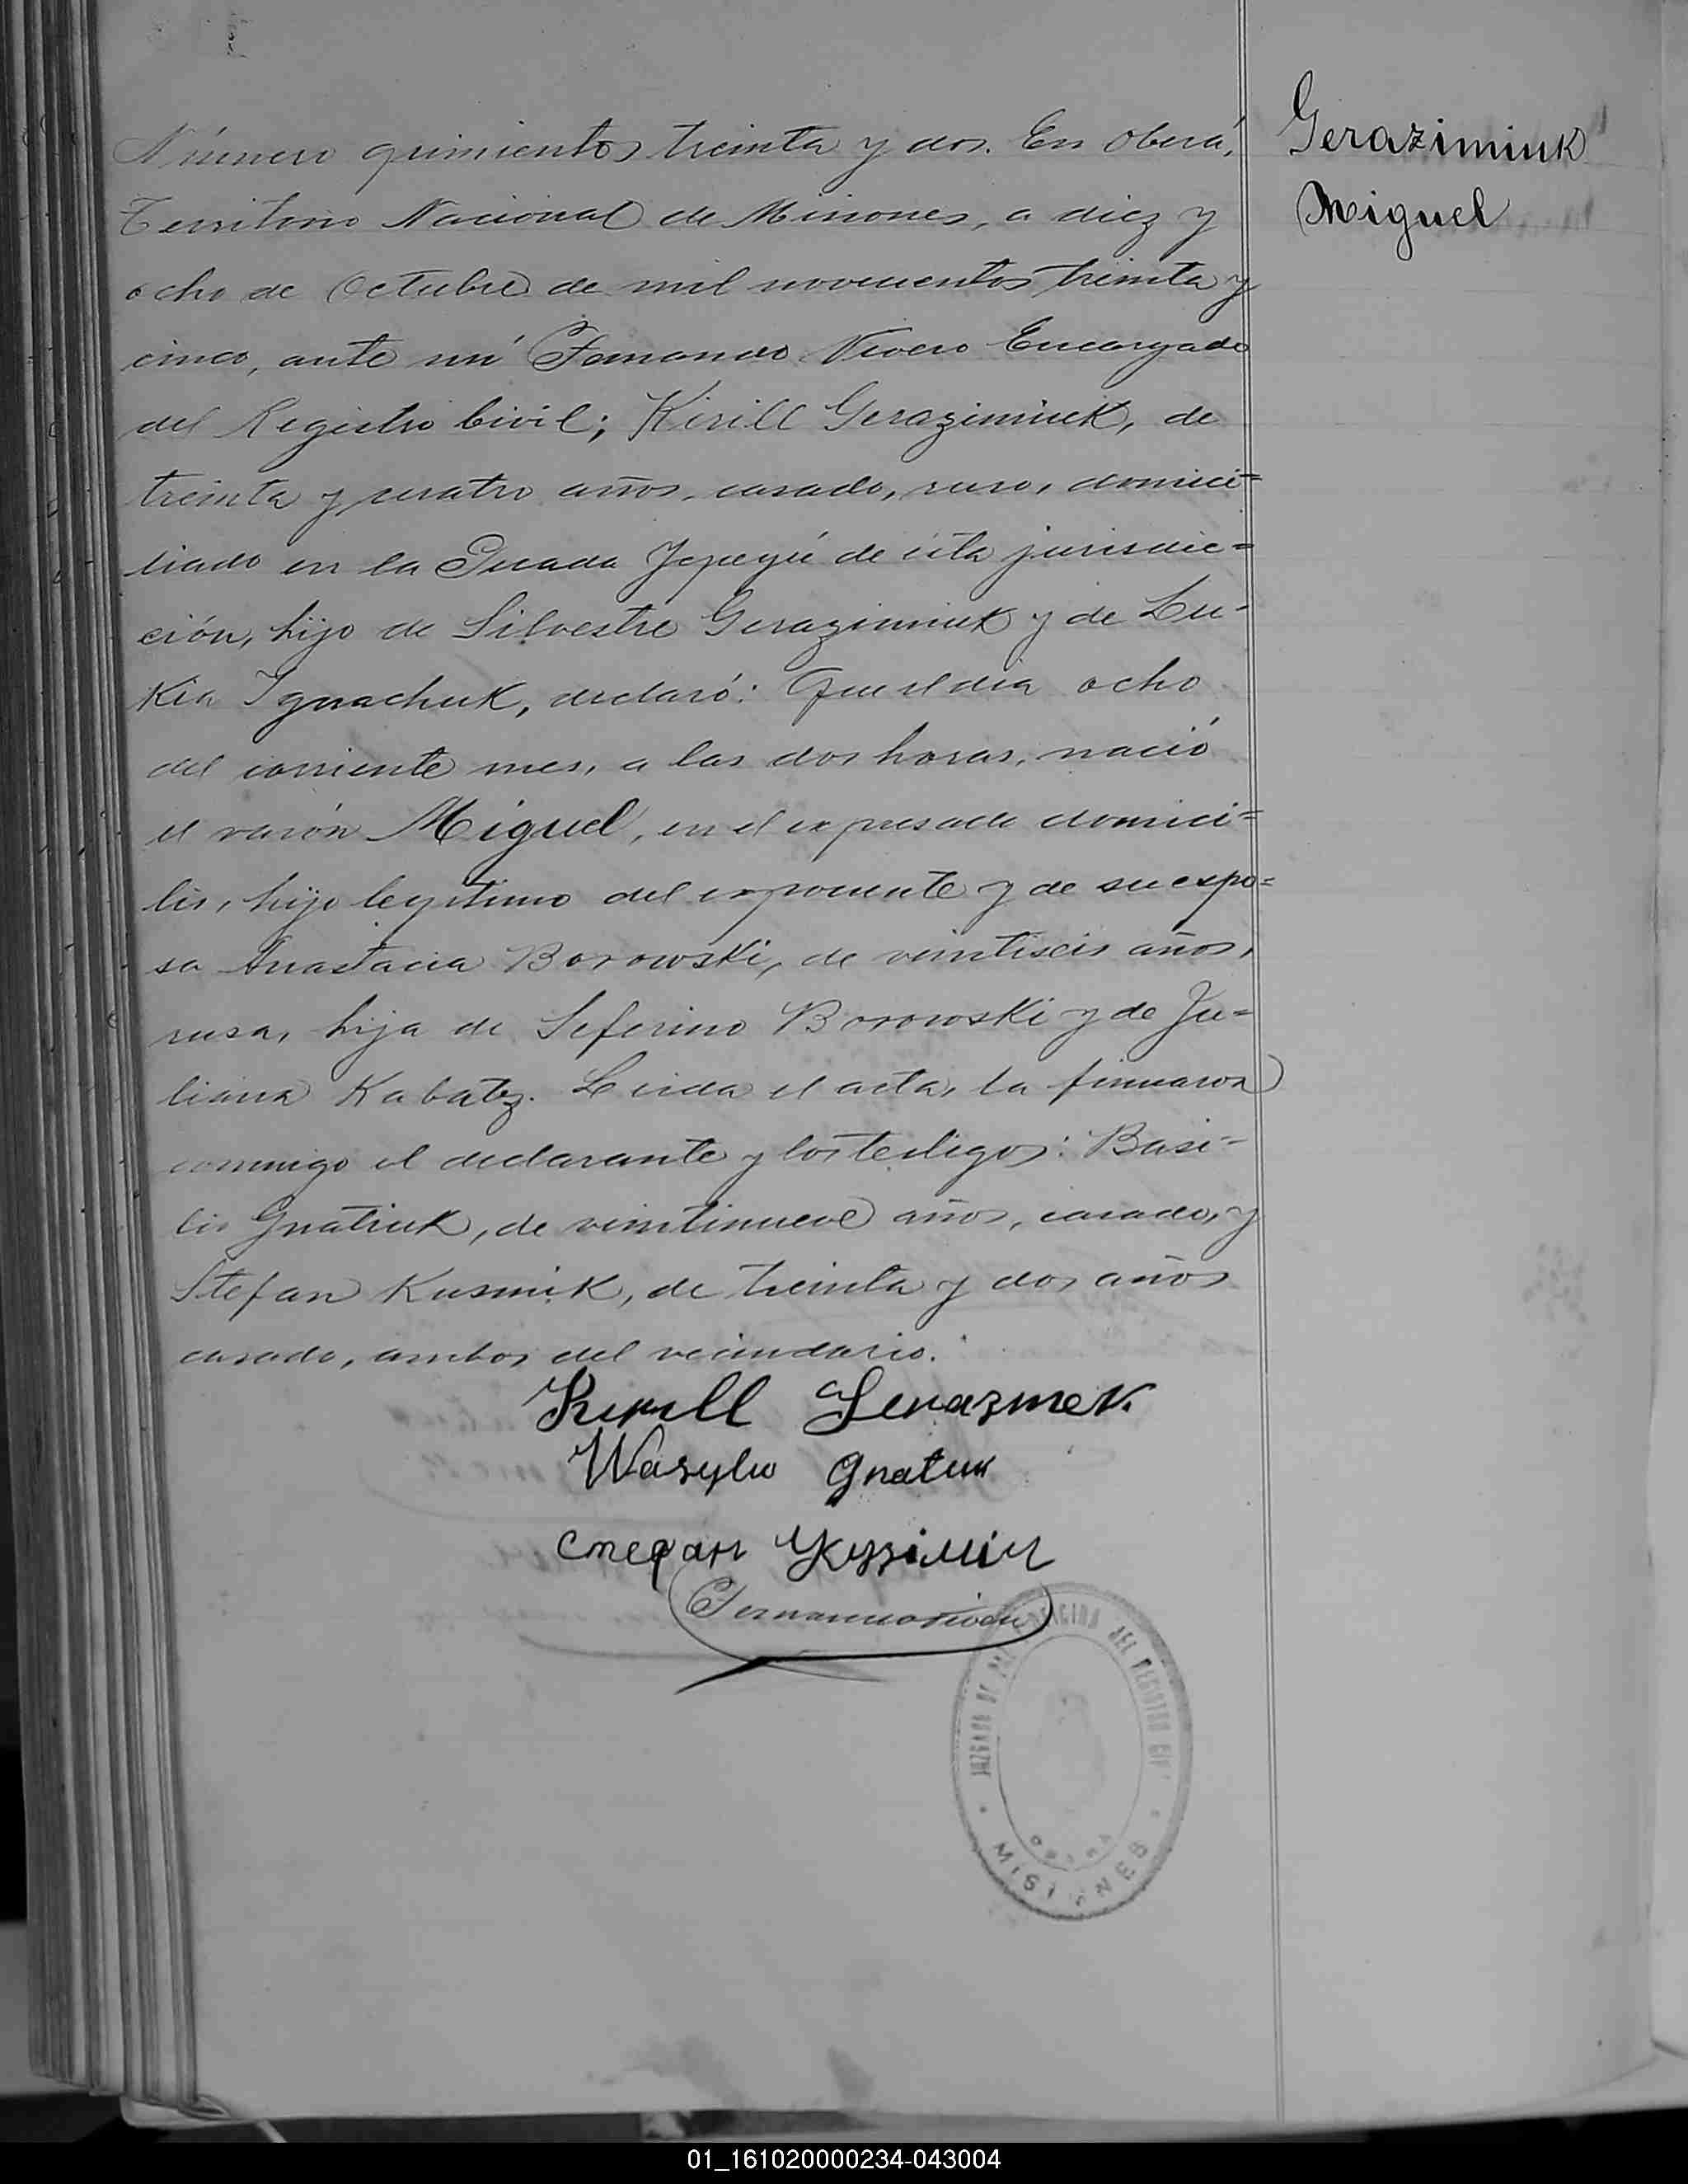 Gerazimiuk
Miguel
Número quinientos treinta y dos. En Oberá,
Territorio Nacional de Misiones, a diez y
ocho de Octubre de mil novecientos treinta y
cinco, ante mí Fernando Vivero Encargado
del Registro Civil; Kirill Gerazimiuk, de
treinta y cuatro años, casado, ruso, domici=
liado en la Picada Yapeyú de ésta jurisdic=
ción, hijo de Silvestre Gerazimiuk y de Lu-
kia Ignachuk, declaró: Que el día ocho
del corriente mes, a las dos horas, nació
el varón Miguel, en el expresado domici=
lio, hijo legítimo del exponente y de su espo=
sa Anastacia Borowski, de veintiseis años,
rusa, hija de Seferino Borowski y de Ju=
liana Kabatz. Leída el acta, la firmaron
conmigo el declarante y los testigos: Basi-
lio Gnatiuk, de veintinueve años, casado, y
Stefan Kusmik, de treinta y dos años
casado, ambos del vecindario.
Kirill Gerazmek.
Wasylw Gnatuk
Стефан
Fernando Vivero
JUZGADO DE PAZ DEL REGISTRO CIVIL
OBERA
MISIONES
01_161020000234-043004